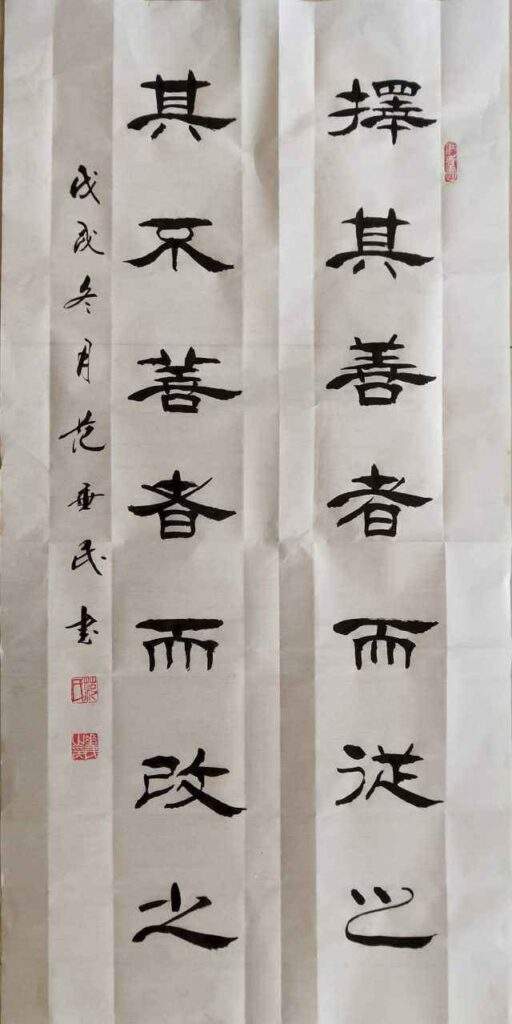 擇其善者而従之
其不善者而改之
戊戌冬月范垂民书